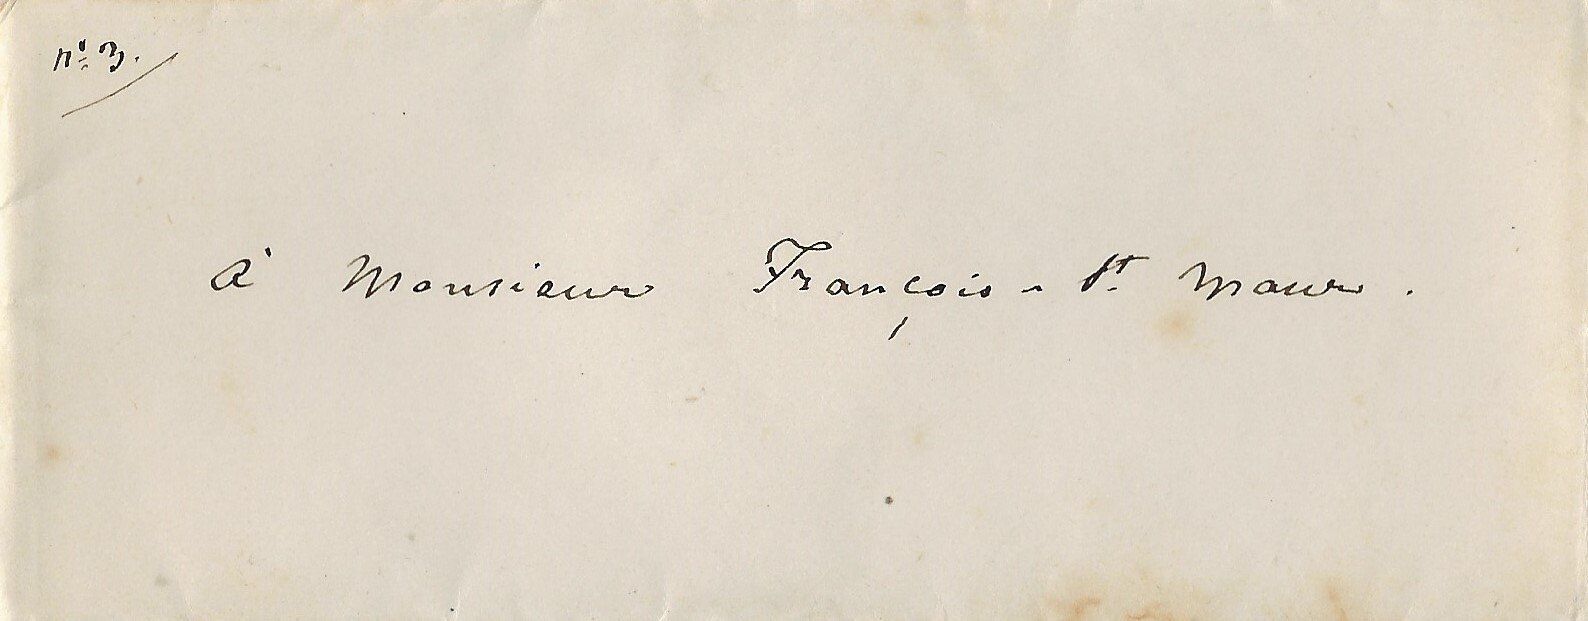 n° 3.
à Monsieur François - St. Maur.